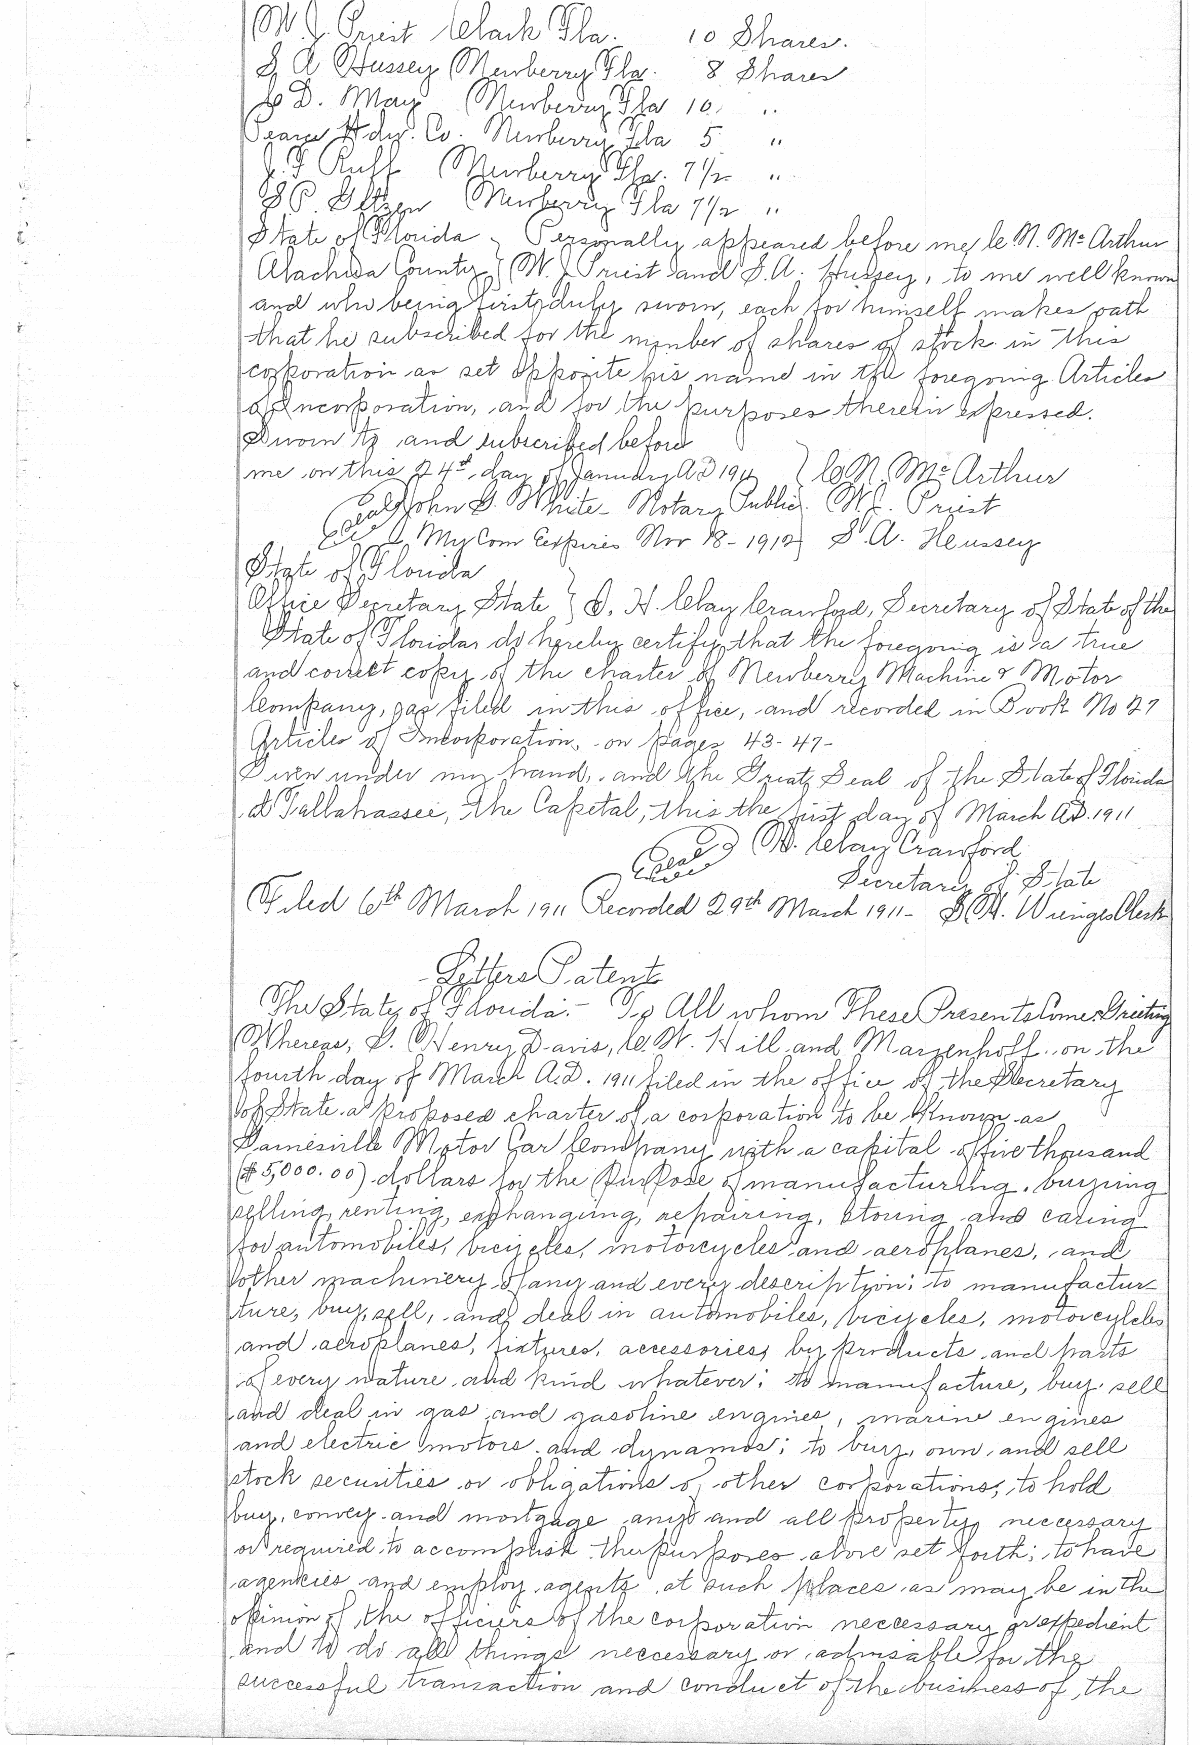 W. J. Priest Clark Fla. 10 Shares.
S A Hussey Newberry Fla. 8 Shares
C D. May Newberry Fla 10. "
Pearce Hdw. Co. Newberry Fla 5 "
J. F Ruff Newberry Fla. 7½ "
S P. Newberry Fla 7½ "
State of Florida } Personally appeared before me, C. N. McArthur
Alachua County } W. J. Priest and S. A. Hussey, to me well known
and who being first duly sworn, each for himself makes oath
that he subscribed for the number of shares of stock in this
corporation as set opposite his name in the foregoing Articles
of Incorporation, and for the purposes therein expressed.
Sworn to and subscribed before
me on this 24th day of January A.D 1911 } C. N. McArthur
(Seal) John G. White - Notary Public. W. J. Priest
My Com Eexpires Nov 18 - 1912 } S. A. Heussey
State of Florida
Office Secretary State } I, H. Clay Crawford, Secretary of State of the
State of Florida, do hereby certify that the foregoing is a true
and correct copy of the charter of Newberry Machine & Motor
Company, as filed in this office, and recorded in Book No 27
Articles of Incorporation, on pages 43-47-
Given under my hand, and the Great Seal of the State of Florida
at Tallahassee, the Capital, this the first day of March A.D. 1911
(Seal) H. Clay Crawford
Secretary of State
Filed 6th March 1911 Recorded 29th March 1911 - S. H. Wienges Clerk
Letters Patent
The State of Florida:- To All whom These Presents Come, Greeting
Whereas, G. Henry Davis, C. W. Hill and Marzenhoff on the
fourth day of March A.D. 1911 filed in the office of the Secretary
of State a proposed charter of a corporation to be known as
Gainesville Motor Car Company with a capital of five thousand
($5,000.00) dollars for the Purpose of manufacturing, buying
selling, renting, exphanging, repairing, storing and caring
for automobiles, bicycles, motorcycles and aeroplanes, and
other machinery of any and every description; to manufactur-
ture, buy, sell, and deal in automobiles, bicycles, motorcylcles
and aeroplanes, fixtures, accessories, by products and parts
of every nature and kind whatever; to manufacture, buy sell
and deal in gas and gasoline engines, marine engines
and electric motors and dynamos; to buy, own and sell
stock securities or obligations of other corporations; to hold
buy, convey and mortgage any and all property neccessary
or required to accomplish the purposes above set forth; to have
agencies and employ agents at such places as may be in the
opinion of the officiers of the corporation neccessary or expedient
and to do all things neccessary or admisable for the
successful transaction and conduct of the business of the